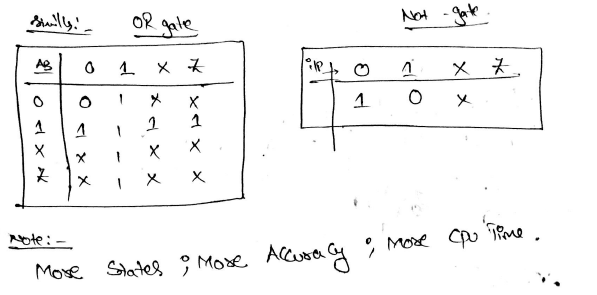 Simlly:-
OR gate
Not - gate
AB 0 1 x Z
0 0 1 x x
1 1 1 1 1
x x 1 x x
Z x 1 x x
i/p → 0 1 x Z
1 0 x
Note:-
More States ; More Accuracy ; More CPU Time.